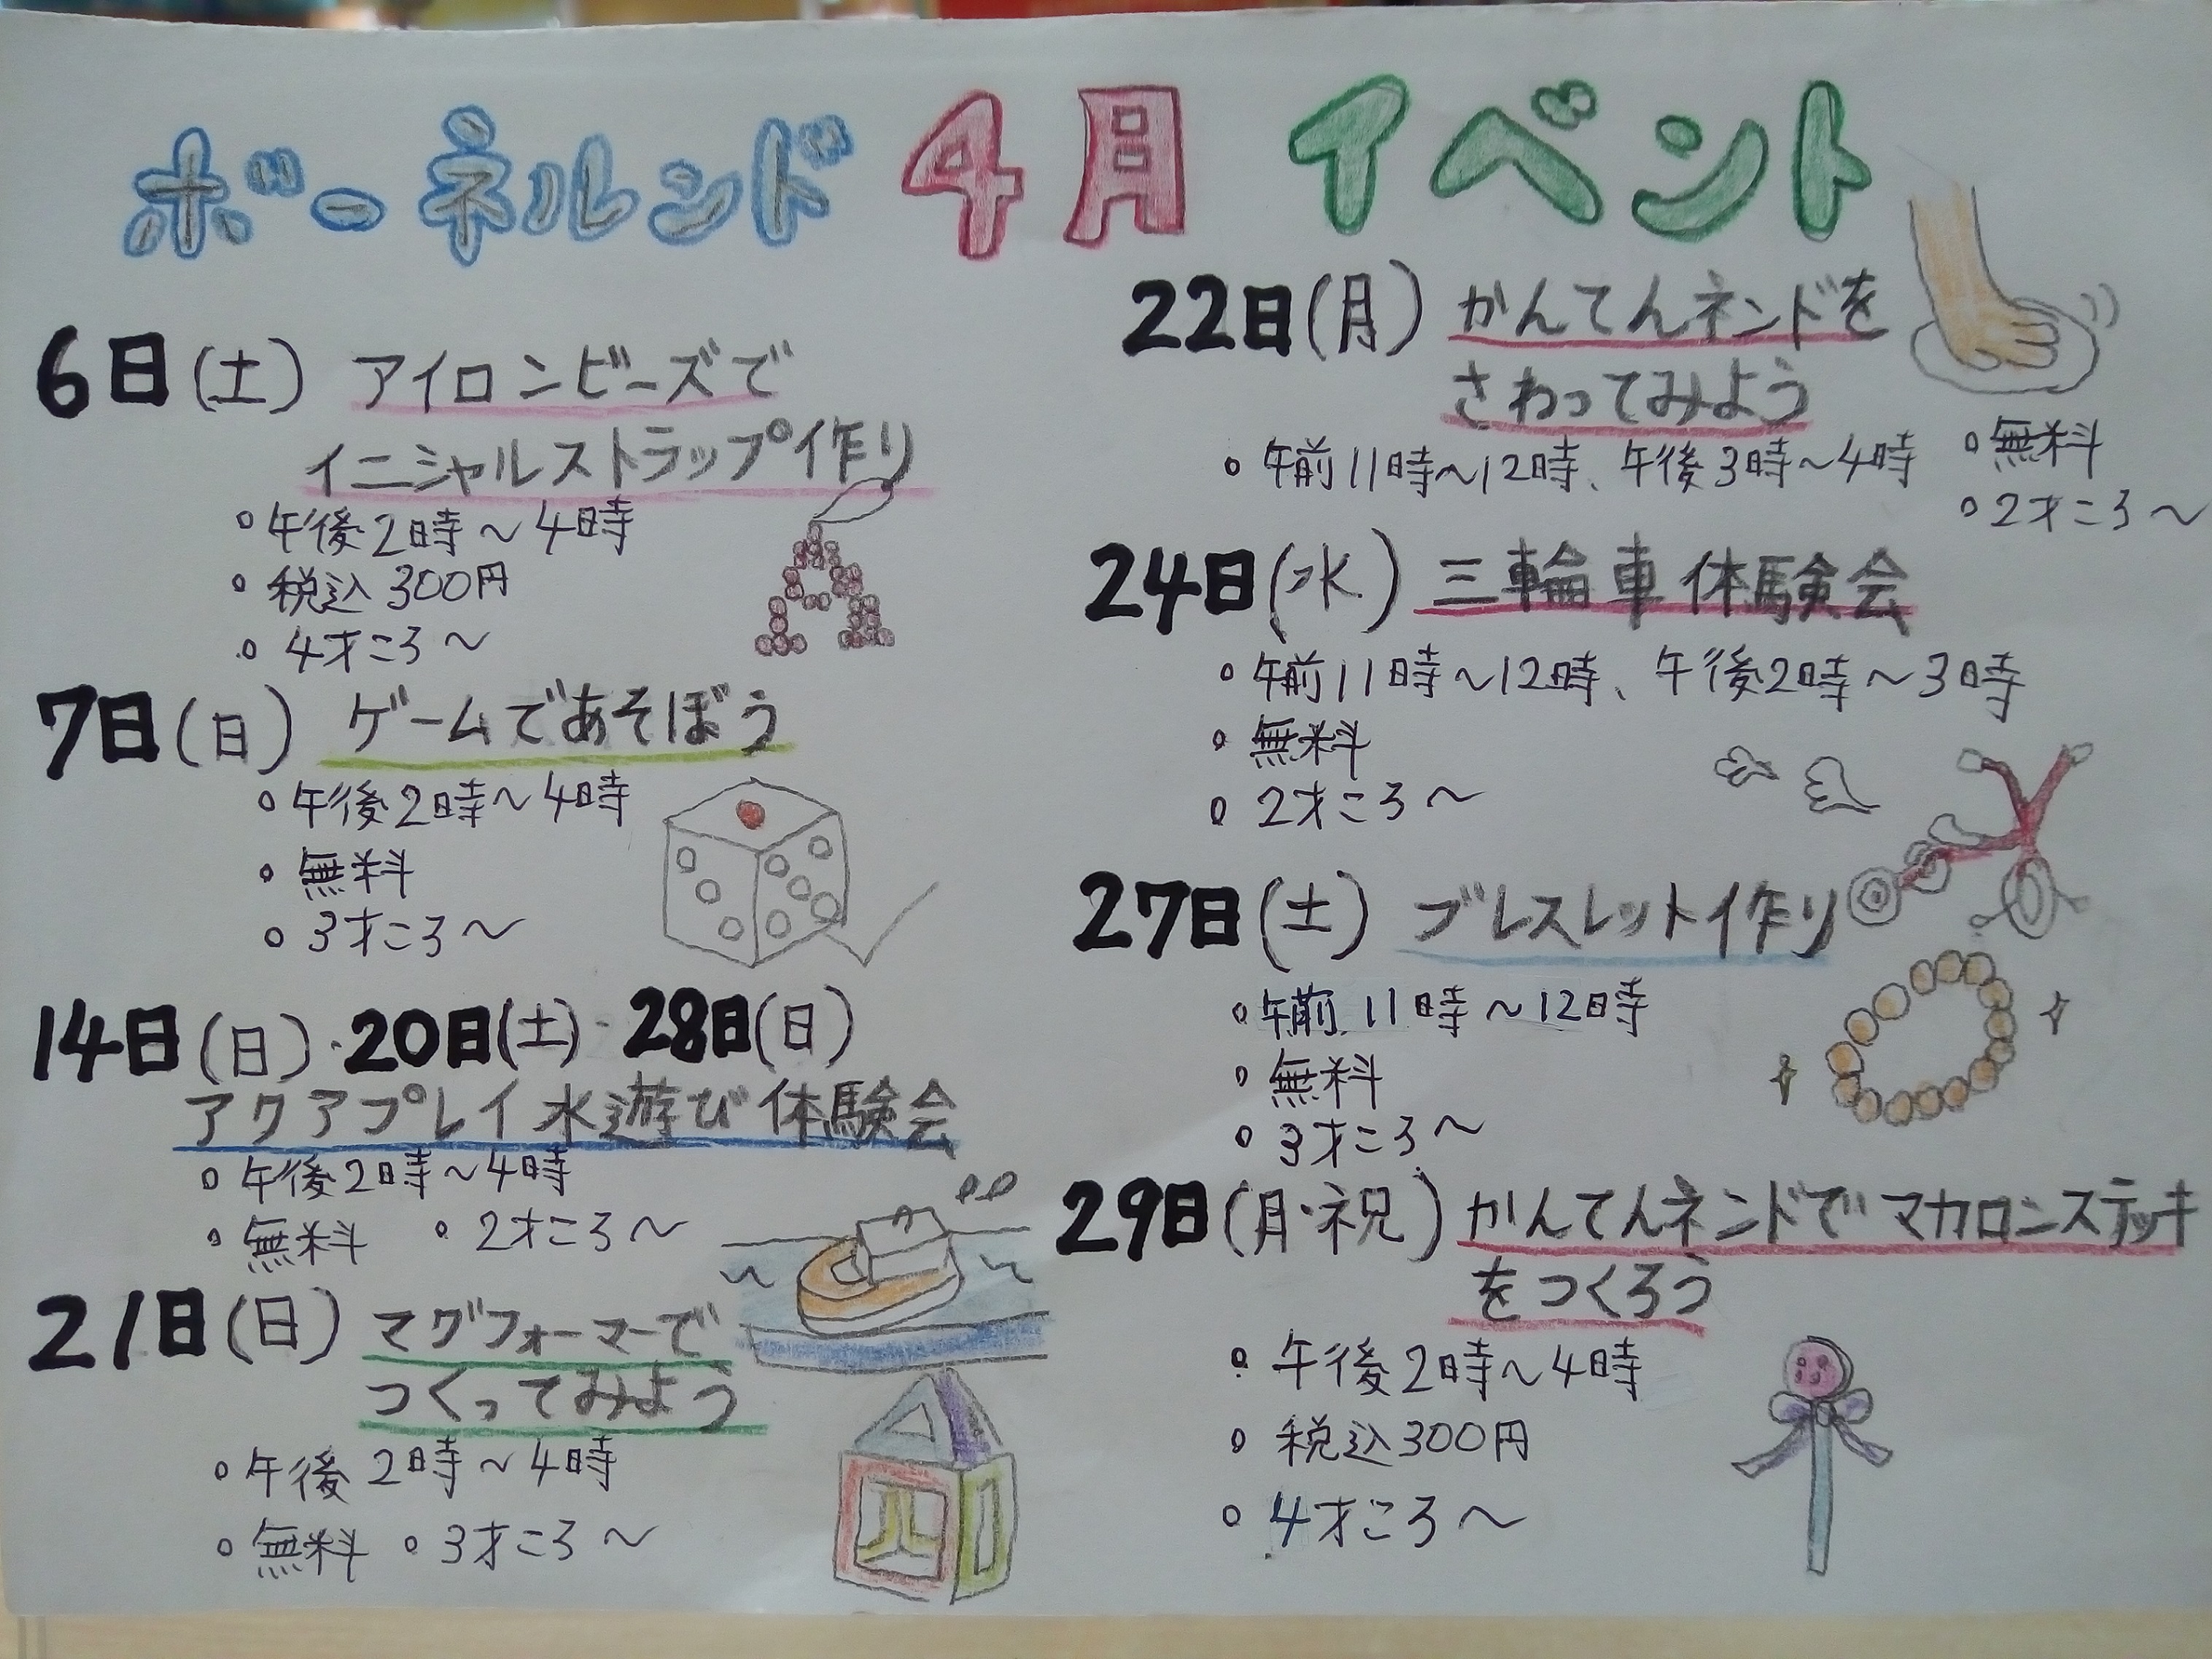 ボーネルンド 4月 イベント
6日(土) アイロンビーズで
イニシャルストラップ作り
・午後2時～4時
・税込300円
・4才ころ～
7日(日) ゲームであそぼう
・午後2時～4時
・無料
・3才ころ～
14日(日)・20日(土)・28日(日)
アクアプレイ水遊び体験会
・午後2時～4時
・無料 ・2才ころ～
21日(日) マグフォーマーで
つくってみよう
・午後2時～4時
・無料 ・3才ころ～
22日(月) かんてんネンドを
さわってみよう
・午前11時～12時、午後3時～4時 ・無料
・2才ころ～
24日(水) 三輪車体験会
・午前11時～12時、午後2時～3時
・無料
・2才ころ～
27日(土) ブレスレット作り
・午前11時～12時
・無料
・3才ころ～
29日(月・祝) かんてんネンドでマカロンステッキ
をつくろう
・午後2時～4時
・税込300円
・4才ころ～